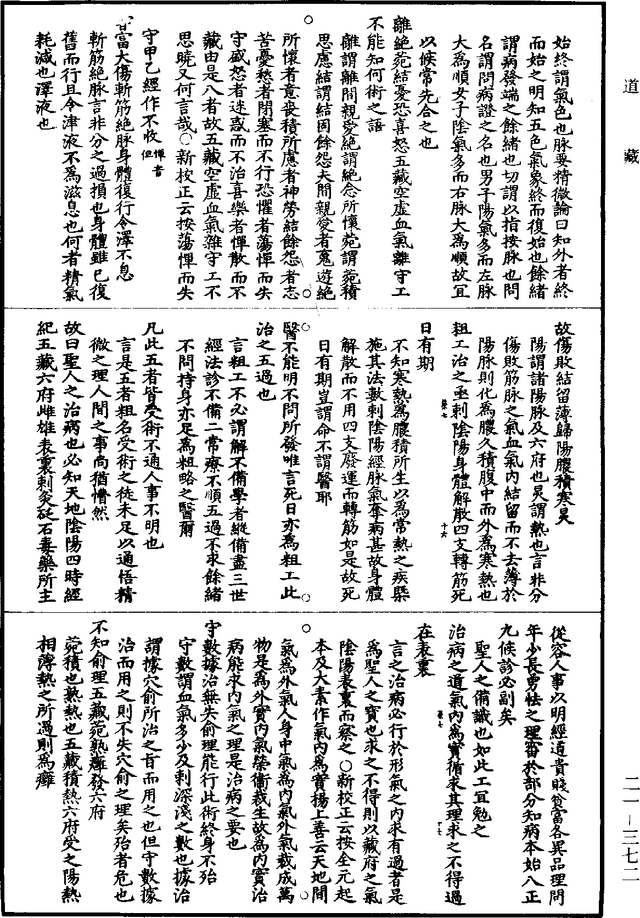 道藏
始終謂氣色也脉要精微論曰知外者終
而始之明知五色氣象終而復始也餘緒
謂病發端之餘緒也切謂以指按脉也問
名謂問病證之名也男子陽氣多而左脉
大為順女子陰氣多而右脉大為順故宜
以候常先合之也
離絕菀結憂恐喜怒五藏空虛血氣離守工
不能知何術之語
離謂離間親愛絕謂絕念所懷菀謂菀積
思慮結謂結固餘怨夫間親愛者䰟遊絕
所懷者意喪積所慮者神勞結餘怨者志
苦憂愁者閉塞而不行恐懼者蕩憚而失
守盛怒者迷惑而不治喜樂者憚散而不
藏由是八者故五藏空虛血氣離守工不
思曉又何言哉○新校正云按蕩憚而失
守甲乙經作不收
嘗富大傷斬筋絕脉身體復行令澤不息
斬筋絕脉言非分之過損也身體雖已復
舊而行且令津液不為滋息也何者精氣
耗減也澤液也
故傷敗結留薄歸陽膿積寒炅
陽謂諸陽脉及六府也炅謂熱也言非分
傷敗筋脉之氣血氣內結留而不去薄於
陽脉則化為膿久積腹中而外為寒熱也
粗工治之亟刺陰陽身體解散四支轉筋死
日有期
不知寒熱為膿積所生以為常熱之疾槩
施其法數刺陰陽經脉氣奪病甚故身體
解散而不用四支廢運而轉筋如是故死
日有期豈謂命不謂醫耶
醫不能明不問所發唯言死日亦為粗工此
治之五過也
言粗工不必謂解不備學者縱備盡三世
經法診不備三常療不順五過不求餘緒
不問持身亦足為粗略之醫爾
凡此五者皆受術不通人事不明也
言是五者粗名受術之徒未足以通悟精
微之理人間之事尚猶懵然
故曰聖人之治病也必知天地陰陽四時經
紀五藏六府雌雄表裏刺灸砭石毒藥所主
從容人事以明經道貴賤貧富各異品理問
年少長勇怯之理審於部分知病本始八正
九候診必副矣
聖人之備識也如此工宜勉之
治病之道氣內為寶循求其理求之不得過
在表裏
言之治病必行於形氣之內求有過者是
為聖人之寶也求之不得則以藏府之氣
陰陽表裏而察之○新校正云按全元起
本及大素作氣內為實揚上善云天地間
氣為外氣人身中氣為內氣外氣裁成萬
物是為外實內氣榮衛裁生故為內實治
病能求內氣之理是治病之要也
守數據治無失俞理能行此術終身不殆
守數謂血氣多少及刺深淺之數也據治
謂據穴俞所治之旨而用之也但守數據
治而用之則不失穴俞之理矣殆者危也
不知俞理五藏菀熟癰發六府
菀積也熟熱也五藏積熱六府受之陽熱
相薄熱之所過則為癰
二一－三七二